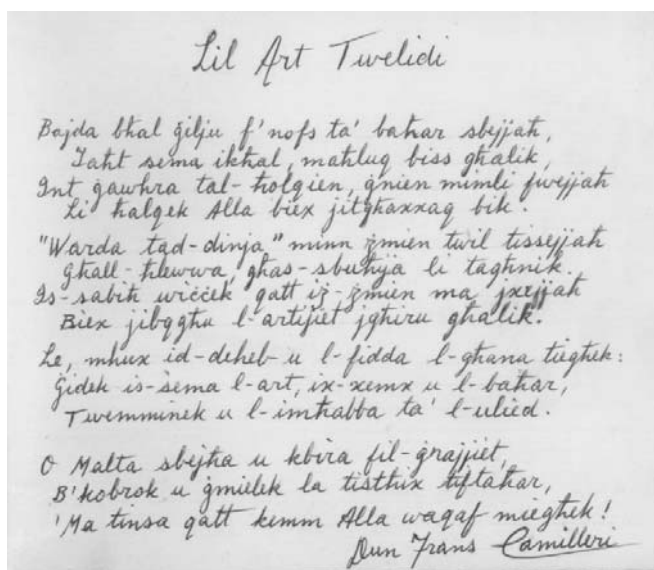 Lil Art Twelidi
Bajda bħal ġilju f'nofs ta' baħar sbejjaħ,
Taħt sema ikħal, maħluq biss għalik,
Int ġawhra tal-ħolqien, ġnien mimli fwejjaħ
Li ħalqek Alla biex jitgħaxxaq bik.
"Warda tad-dinja" minn żmien twil tissejjaħ
Għall-ħlewwa, għas-sbuħija li tagħnik.
Is-sabiħ wiċċek qatt iż-żmien ma jxejjaħ
Biex jibqgħu l-artijiet jgħiru għalik.
Le, mhux id-deheb u l-fidda l-għana tiegħek:
Ġidek is-sema l-art, ix-xemx u l-baħar,
Twemminek u l-imħabba ta' l-ulied.
O Malta sbejħa u kbira fil-ġrajjiet,
B'kobrok u ġmielek la tistħix tiftaħar,
'Ma tinsa qatt kemm Alla waqaf miegħek!
Dun Frans Camilleri